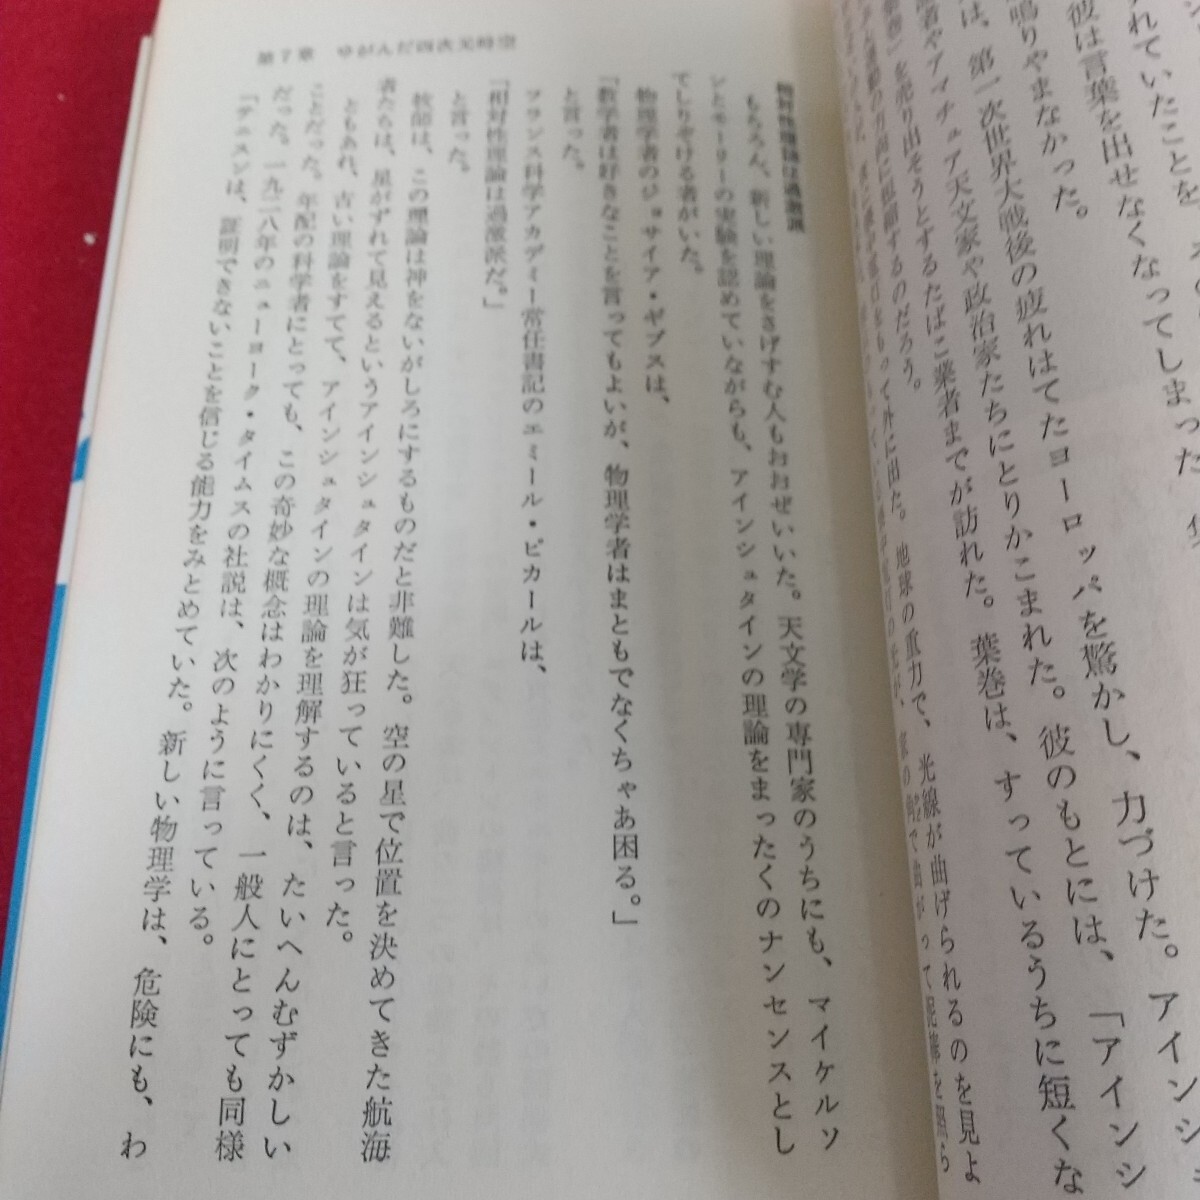 シ
れていたことを、
彼は言葉を出せなくなってしまった。
鳴りやまなかった。
は、第一次世界大戦後の疲れはてたヨーロッパを驚かし、力づけた。アインシ
者やアマチュア天文家や政治家たちにとりかこまれた。彼のもとには、「アインシ
を売り出そうとするたばこ業者までが訪れた。葉巻は、すっているうちに短くな
するのだろう。
外に出た。地球の重力で、光線が曲げられるのを見よ
第7章 ゆがんだ四次元時空
相対性理論は過激派
もちろん、新しい理論をさげすむ人もおおぜいいた。天文学の専門家のうちにも、マイケルソ
ンとモーリーの実験を認めていながらも、アインシュタインの理論をまったくのナンセンスとし
てしりぞける者がいた。
物理学者のジョサイア・ギブスは、
「数学者は好きなことを言ってもよいが、物理学者はまともでなくちゃあ困る。」
と言った。
フランス科学アカデミー常任書記のエミール・ピカールは、
「相対性理論は過激派だ。」
と言った。
牧師は、この理論は神をないがしろにするものだと非難した。空の星で位置を決めてきた航海
者たちは、星がずれて見えるというアインシュタインは気が狂っていると言った。
ともあれ、古い理論をすてて、アインシュタインの理論を理解するのは、たいへんむずかしい
ことだった。年配の科学者にとっても、この奇妙な概念はわかりにくく、一般人にとっても同様
だった。一九二八年のニューヨーク・タイムスの社説は、次のように言っている。
「テニスンは、証明できないことを信じる能力をみとめていた。新しい物理学は、危険にも、わ